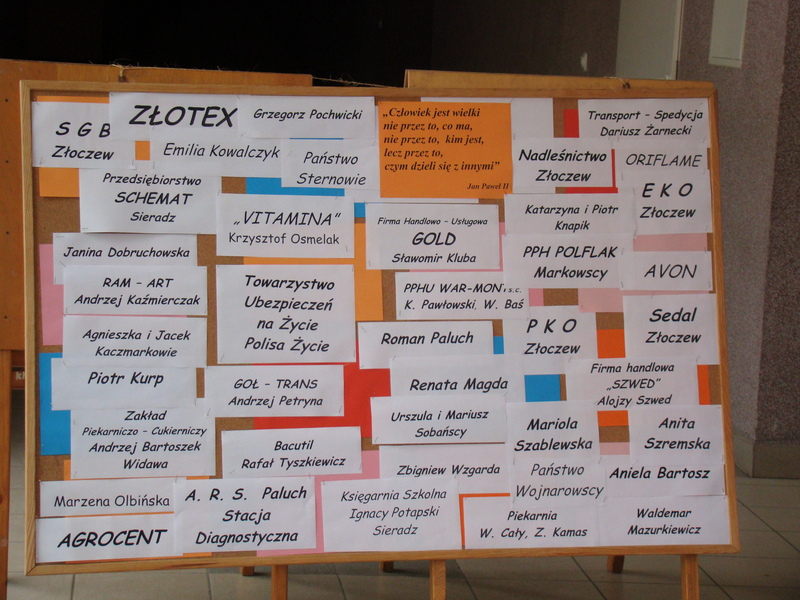 S G B
Złoczew
ZŁOTEX
Grzegorz Pochwicki
„Człowiek jest wielki
nie przez to, co ma,
nie przez to, kim jest,
lecz przez to,
czym dzieli się z innymi”
Jan Paweł II
Transport – Spedycja
Dariusz Żarnecki
Emilia Kowalczyk
Państwo
Sternowie
Nadleśnictwo
Złoczew
ORIFLAME
Przedsiębiorstwo
SCHEMAT
Sieradz
„VITAMINA”
Krzysztof Osmelak
Firma Handlowo - Usługowa
GOLD
Sławomir Kluba
Katarzyna i Piotr
Knapik
E K O
Złoczew
Janina Dobruchowska
PPH POLFLAK
Markowscy
AVON
RAM – ART
Andrzej Kaźmierczak
Towarzystwo
Ubezpieczeń
na Życie
Polisa Życie
PPHU WAR-MONT s.c.
K. Pawłowski, W. Baś
Agnieszka i Jacek
Kaczmarkowie
Roman Paluch
P K O
Złoczew
Sedal
Złoczew
Piotr Kurp
GOŁ – TRANS
Andrzej Petryna
Renata Magda
Firma handlowa
„SZWED”
Alojzy Szwed
Zakład
Piekarniczo - Cukierniczy
Andrzej Bartoszek
Widawa
Urszula i Mariusz
Sobańscy
Mariola
Szablewska
Anita
Szremska
Bacutil
Rafał Tyszkiewicz
Zbigniew Wzgarda
Państwo
Wojnarowscy
Aniela Bartosz
Marzena Olbińska
A. R. S. Paluch
Stacja
Diagnostyczna
Księgarnia Szkolna
Ignacy Potapski
Sieradz
Piekarnia
W. Cały, Z. Kamas
Waldemar
Mazurkiewicz
AGROCENT